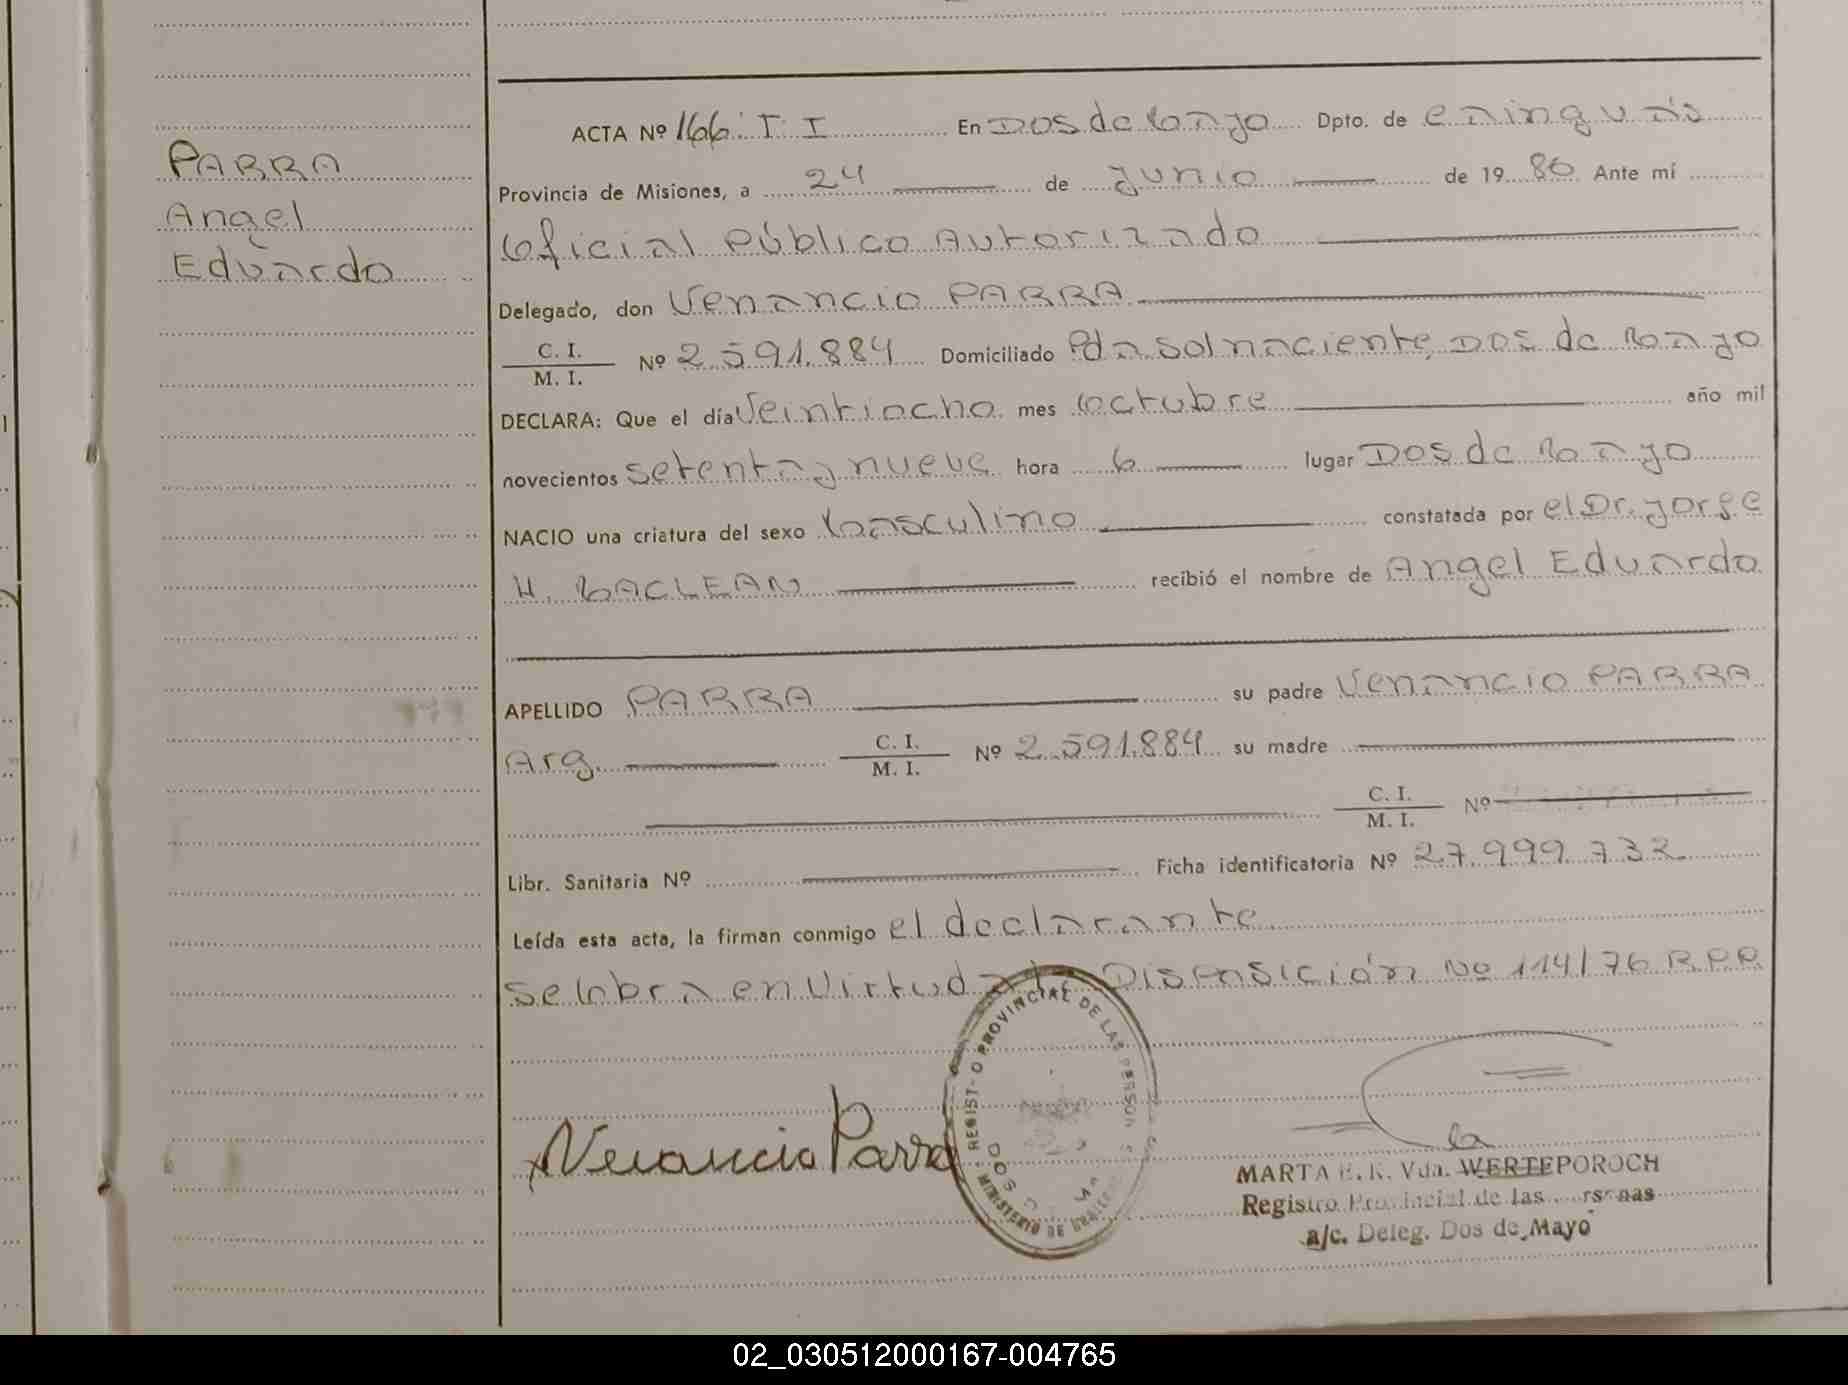 PARRA
Angel
Eduardo
ACTA Nº 166 T I En Dos de Mayo Dpto. de
Provincia de Misiones, a 24 de junio de 1980 Ante mí
Oficial Público Autorizado
Delegado, don Venancio PARRA
C. I.
M. I. Nº 2.591.884 Domiciliado Pda Sol naciente, Dos de Mayo
DECLARA: Que el día Veintiocho mes Octubre año mil
novecientos setenta y nueve hora 6 lugar Dos de Mayo
NACIO una criatura del sexo Masculino constatada por el Dr. Jorge
H. MACLEAN recibió el nombre de Angel Eduardo
APELLIDO PARRA su padre Venancio PARRA
Arg. C. I.
M. I. Nº 2.591.884 su madre
C. I.
M. I. Nº
Libr. Sanitaria Nº Ficha identificatoria Nº 27.999.732
Leída esta acta, la firman conmigo el declarante
se labra en Virtud a Disposición Nº 114/76 R.P.P.
Venancio Parra
REGISTRO PROVINCIAL DE LAS PERSON
MINISTERIO DE
MARTA E. K. Vda. WERTEPOROCH
Registro Provincial de las Personas
a/c. Deleg. Dos de Mayo
02_030512000167-004765